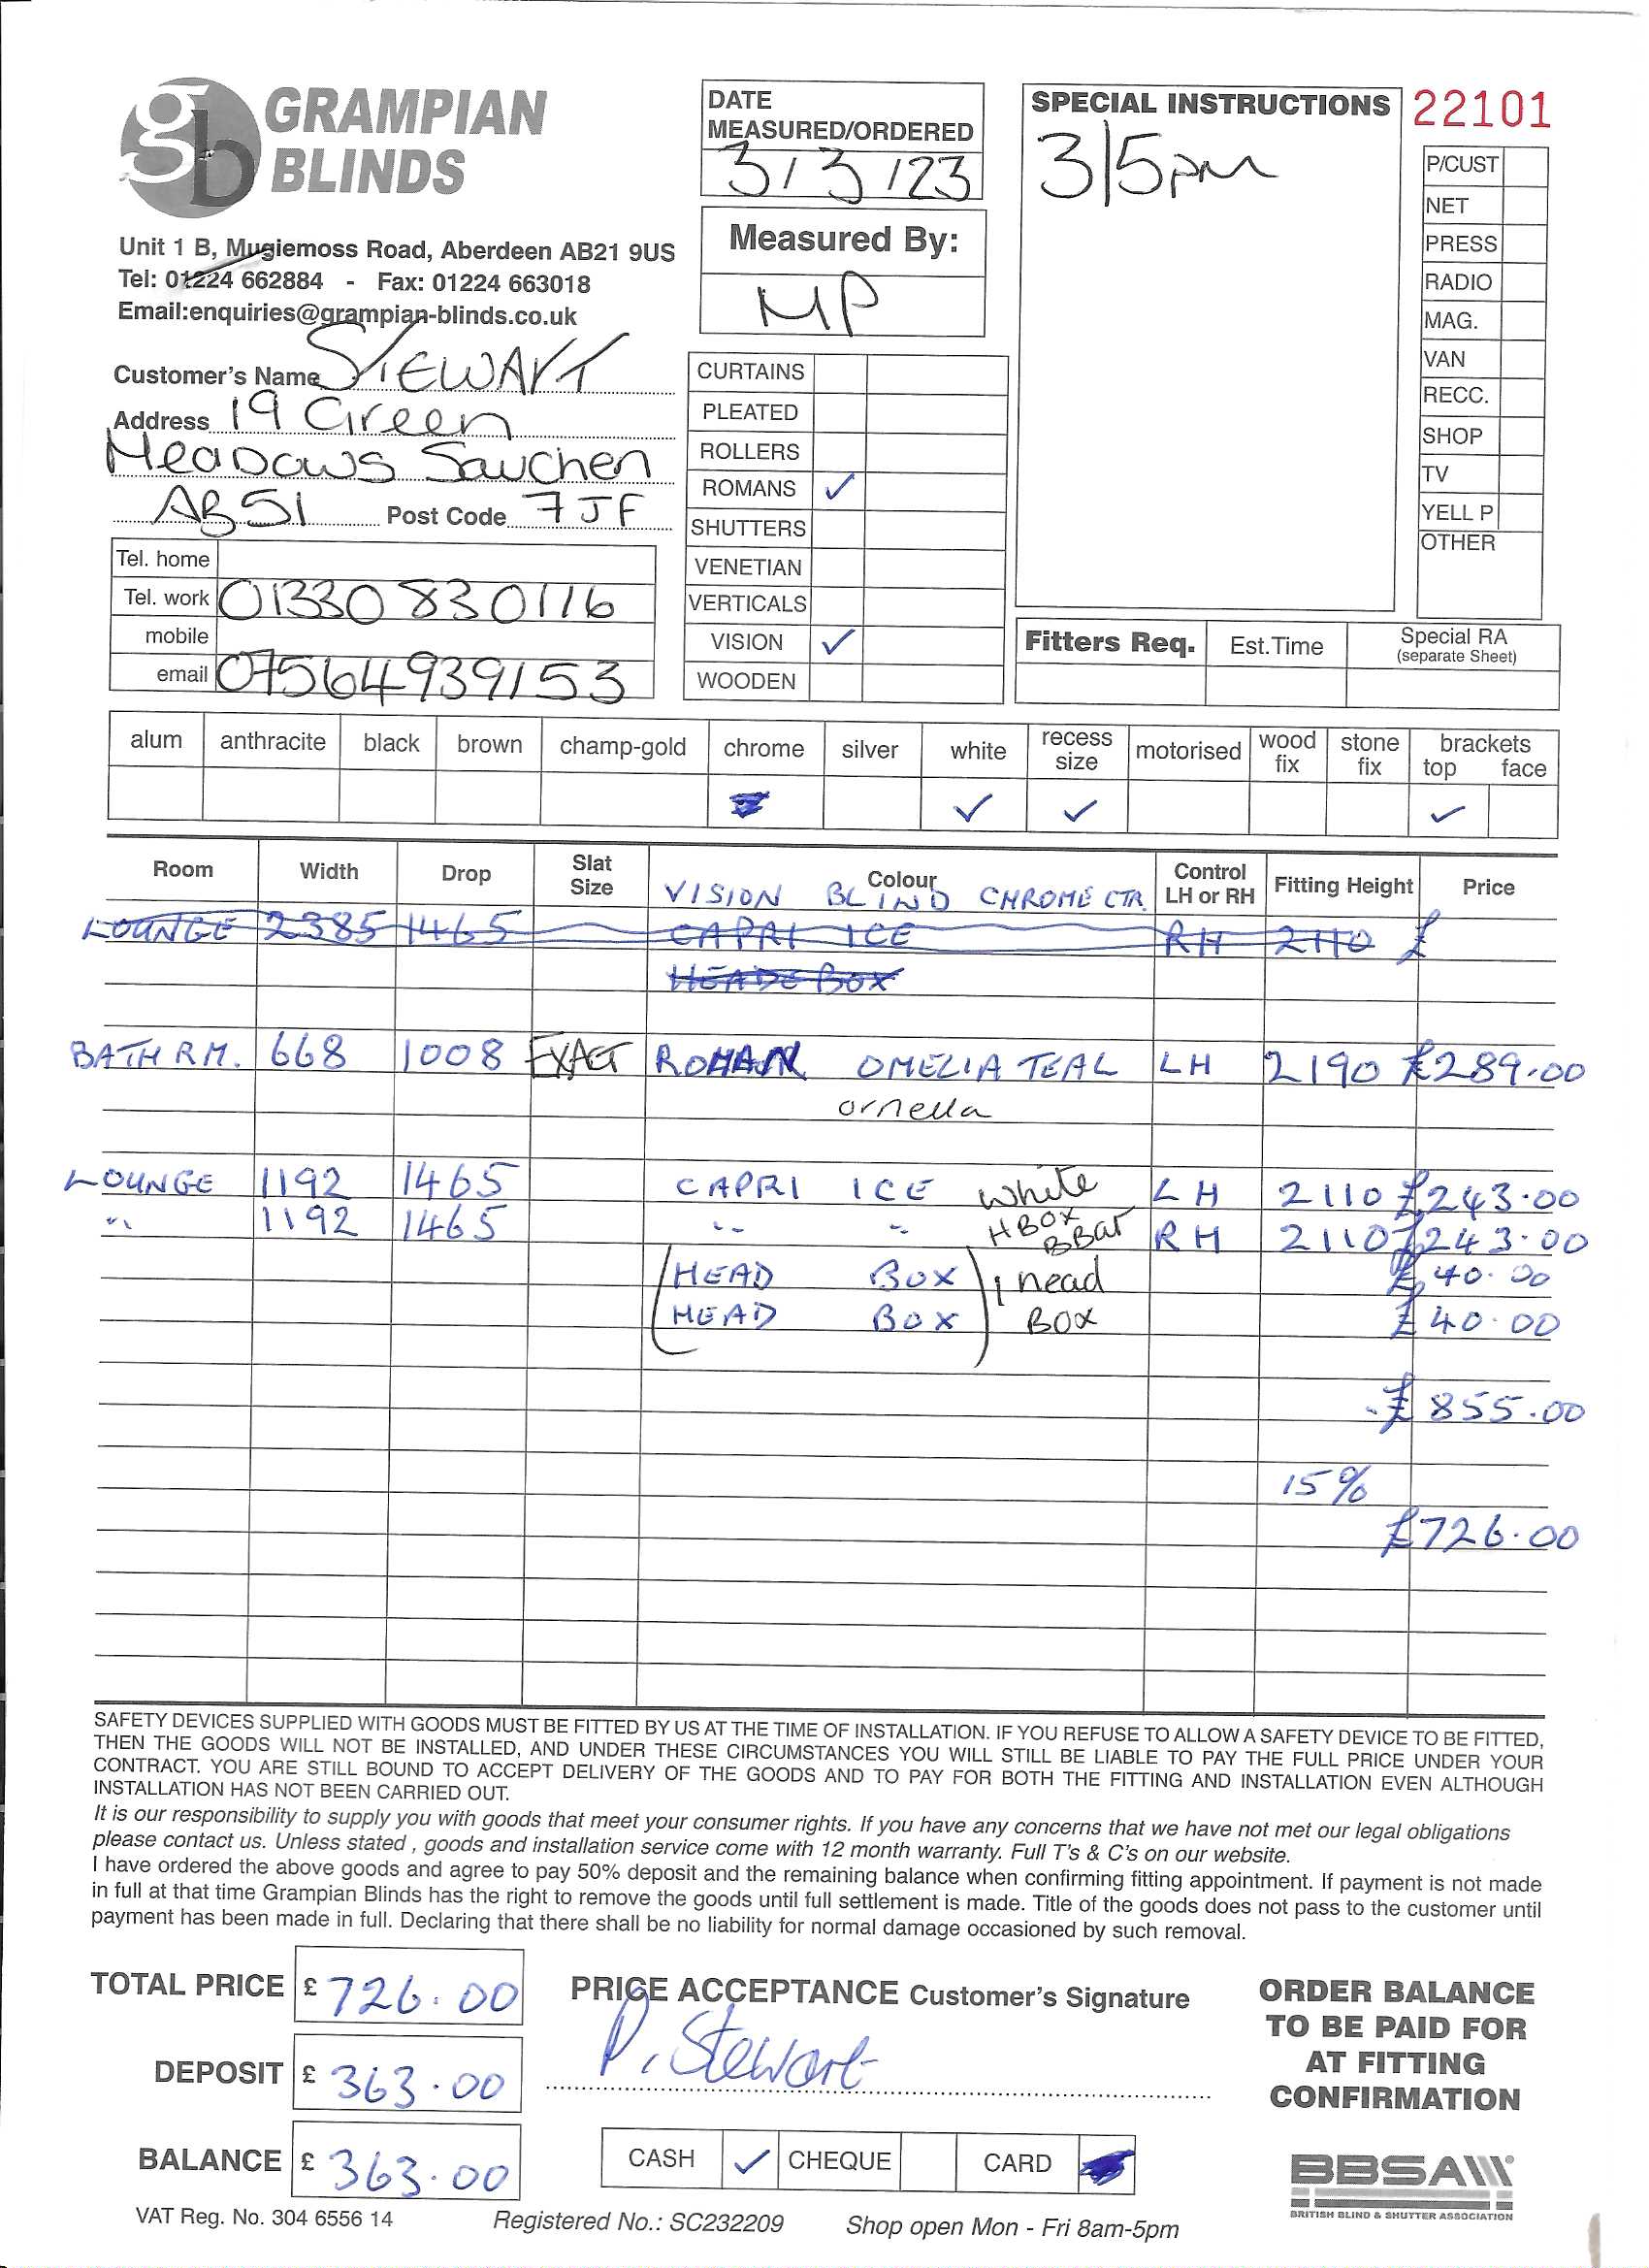 gb GRAMPIAN
BLINDS
Unit 1 B, Mugiemoss Road, Aberdeen AB21 9US
Tel: 01224 662884 - Fax: 01224 663018
Email:enquiries@grampian-blinds.co.uk
DATE
MEASURED/ORDERED
3/3/23
Measured By:
MP
SPECIAL INSTRUCTIONS
3/5pm
22101
P/CUST
NET
PRESS
RADIO
MAG.
VAN
RECC.
SHOP
TV
YELL P
OTHER
Customer's Name STEWART
Address 19 Green
Meadows Sauchen
AB51 Post Code 7JF
Tel. home
Tel. work 01330 830116
mobile
email 07564939153
CURTAINS
PLEATED
ROLLERS
ROMANS ✓
SHUTTERS
VENETIAN
VERTICALS
VISION ✓
WOODEN
Fitters Req. Est.Time Special RA
(separate Sheet)
alum anthracite black brown champ-gold chrome silver white recess size motorised wood fix stone fix brackets top face
✓ ✓ ✓
Room Width Drop Slat Size Colour Control LH or RH Fitting Height Price
VISION BLIND CHROME CTR.
LOUNGE 2385 1465 CAPRI ICE RH 2110 £
HEADE BOX
BATH RM. 668 1008 EXACT ROMAN OMELIA TEAL LH 2190 £289.00
ornella
LOUNGE 1192 1465 CAPRI ICE white LH 2110 £243.00
" 1192 1465 " " HBOX BBar RH 2110 £243.00
(HEAD BOX) 1 head £40.00
HEAD BOX BOX £40.00
£855.00
15%
£726.00
SAFETY DEVICES SUPPLIED WITH GOODS MUST BE FITTED BY US AT THE TIME OF INSTALLATION. IF YOU REFUSE TO ALLOW A SAFETY DEVICE TO BE FITTED,
THEN THE GOODS WILL NOT BE INSTALLED, AND UNDER THESE CIRCUMSTANCES YOU WILL STILL BE LIABLE TO PAY THE FULL PRICE UNDER YOUR
CONTRACT. YOU ARE STILL BOUND TO ACCEPT DELIVERY OF THE GOODS AND TO PAY FOR BOTH THE FITTING AND INSTALLATION EVEN ALTHOUGH
INSTALLATION HAS NOT BEEN CARRIED OUT.
It is our responsibility to supply you with goods that meet your consumer rights. If you have any concerns that we have not met our legal obligations
please contact us. Unless stated , goods and installation service come with 12 month warranty. Full T's & C's on our website.
I have ordered the above goods and agree to pay 50% deposit and the remaining balance when confirming fitting appointment. If payment is not made
in full at that time Grampian Blinds has the right to remove the goods until full settlement is made. Title of the goods does not pass to the customer until
payment has been made in full. Declaring that there shall be no liability for normal damage occasioned by such removal.
TOTAL PRICE £ 726.00
DEPOSIT £ 363.00
BALANCE £ 363.00
PRICE ACCEPTANCE Customer's Signature
P. Stewart
CASH ✓ CHEQUE CARD
ORDER BALANCE
TO BE PAID FOR
AT FITTING
CONFIRMATION
BBSA
BRITISH BLIND & SHUTTER ASSOCIATION
VAT Reg. No. 304 6556 14 Registered No.: SC232209 Shop open Mon - Fri 8am-5pm